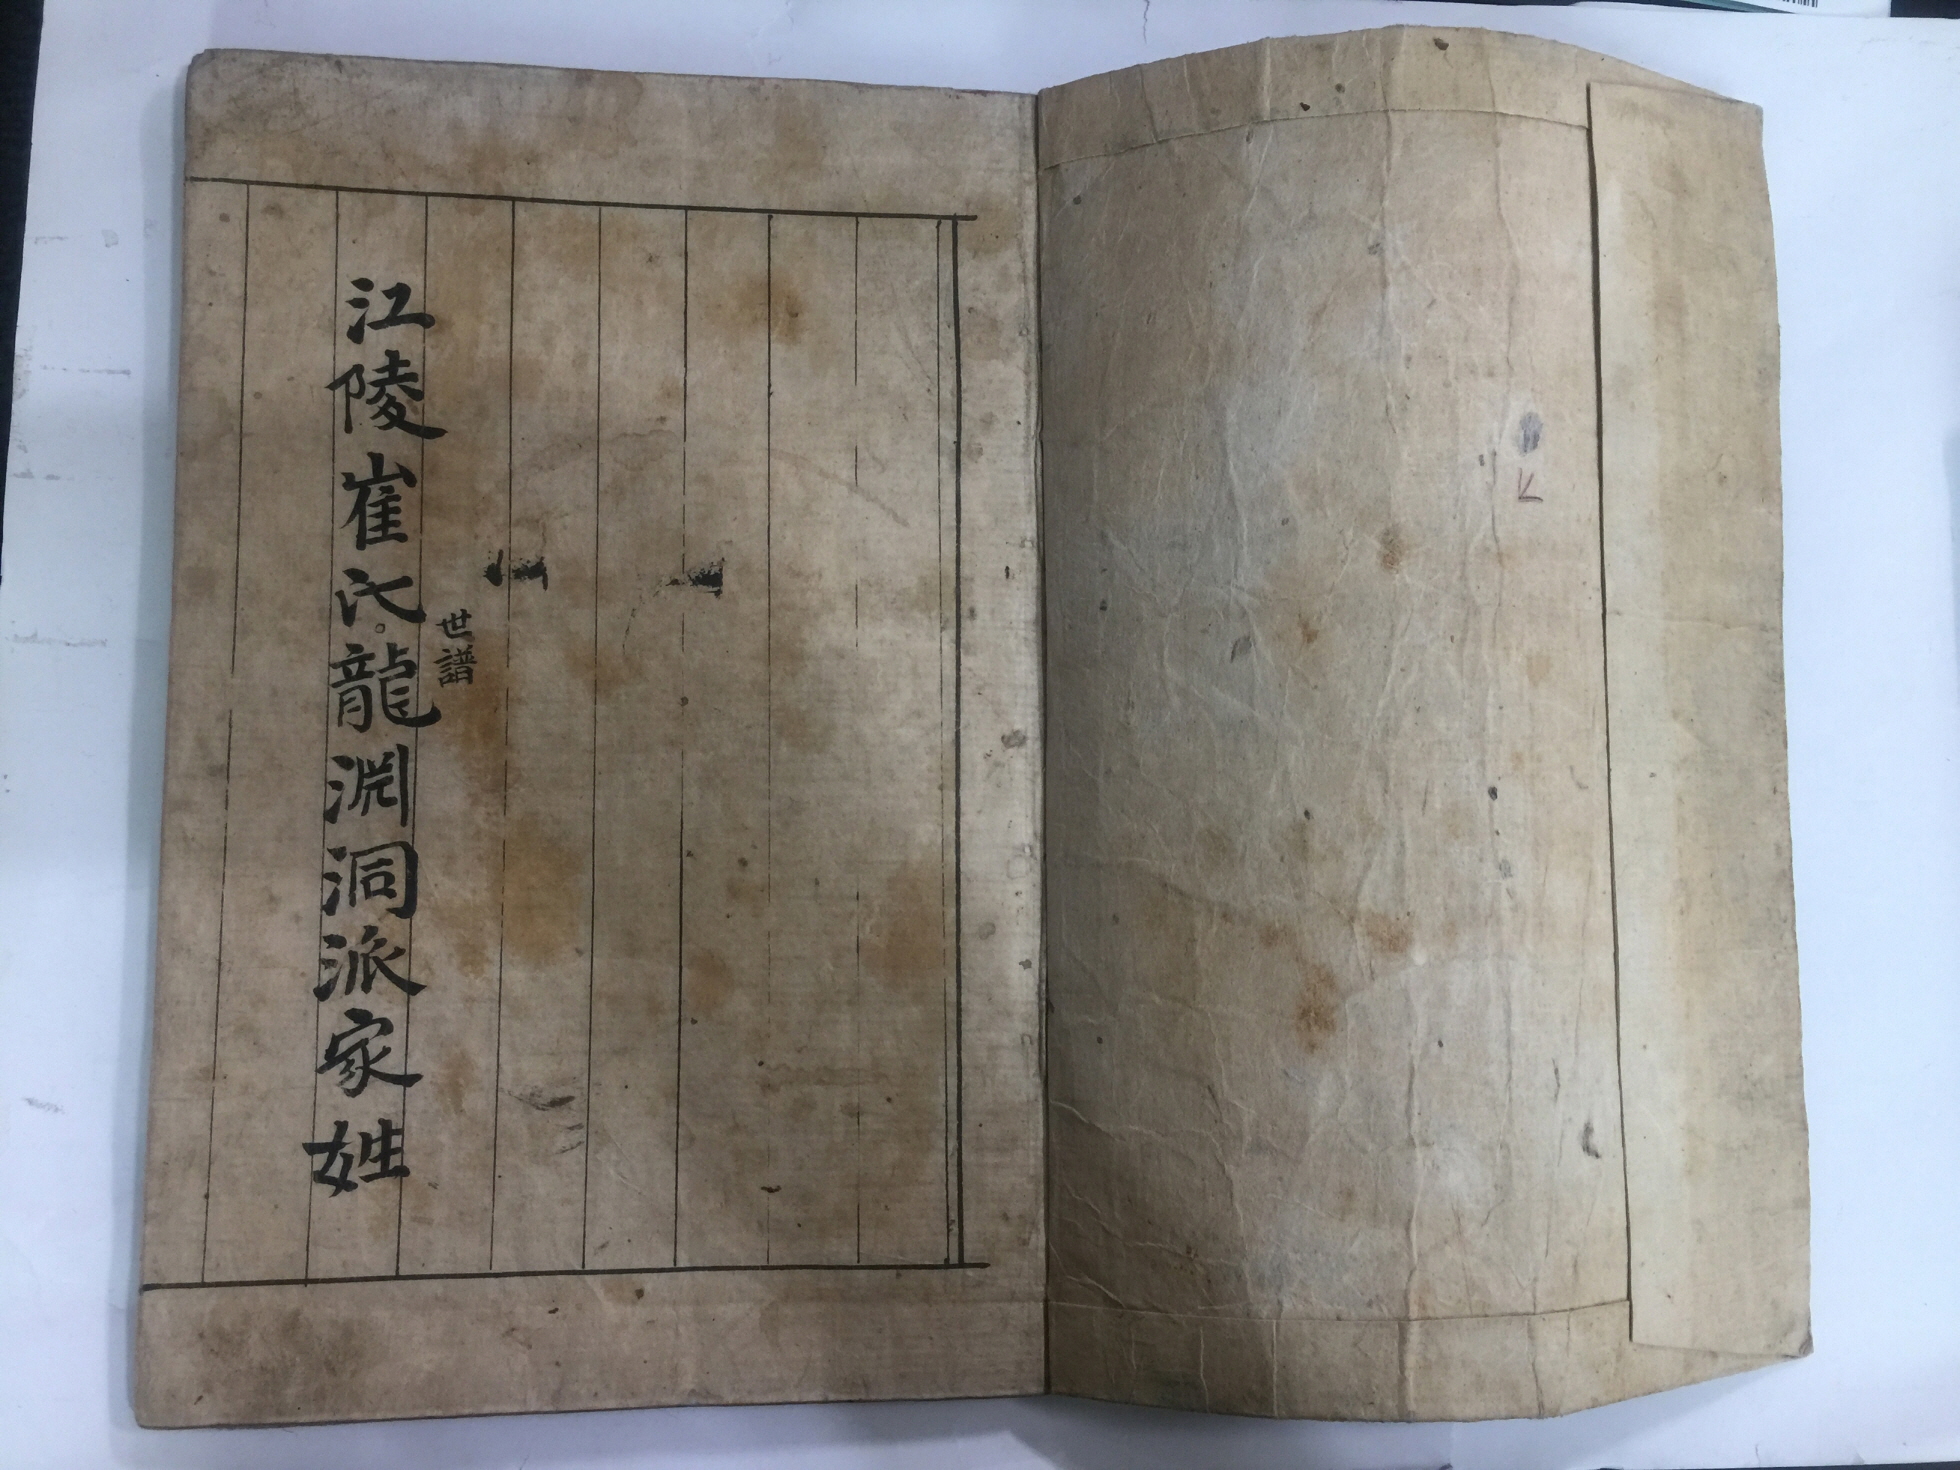 江陵崔氏龍淵洞派家姓
世譜